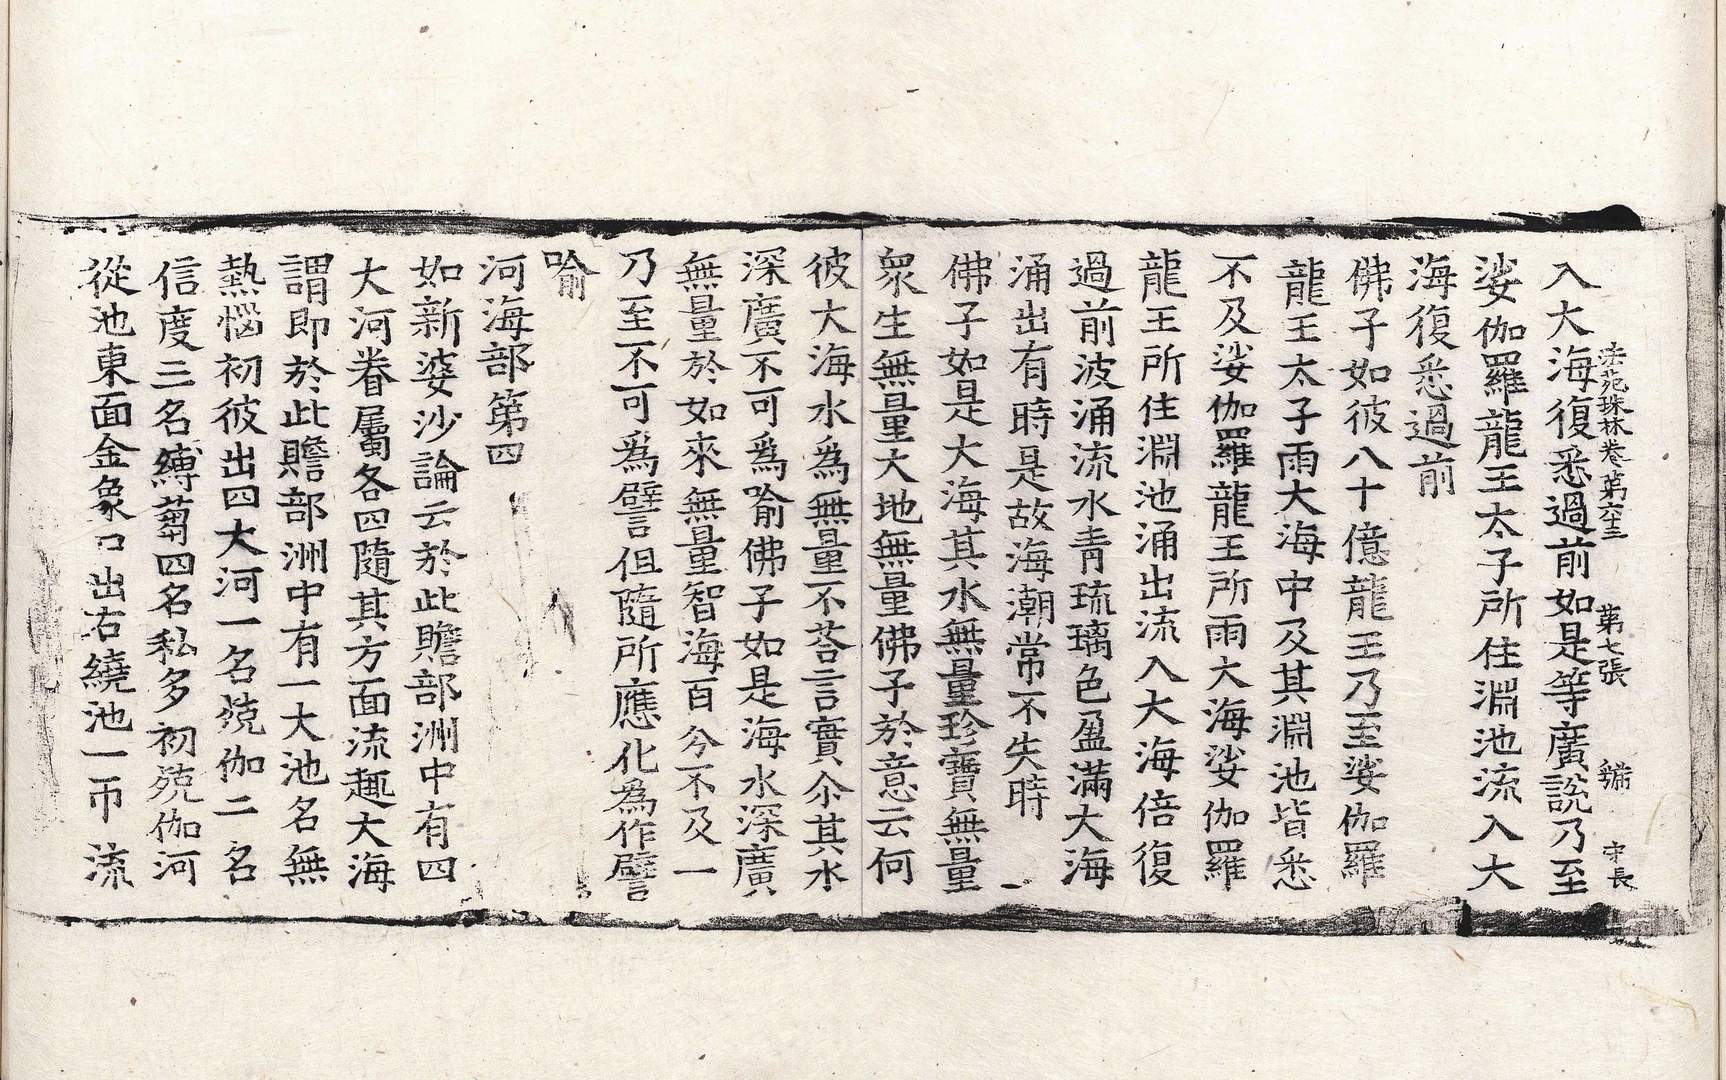 法苑珠林卷第六十三 第七張 守長
入大海復悉過前如是等廣說乃至
娑伽羅龍王太子所住淵池流入大
海復悉過前
佛子如彼八十億龍王乃至娑伽羅
龍王太子雨大海中及其淵池皆悉
不及娑伽羅龍王所雨大海娑伽羅
龍王所住淵池涌出流入大海倍復
過前波涌流水青琉璃色盈滿大海
涌出有時是故海潮常不失時
佛子如是大海其水無量珍寶無量
衆生無量大地無量佛子於意云何
彼大海水為無量不荅言實尒其水
深廣不可爲喻佛子如是海水深廣
無量於如來無量智海百分不及一
乃至不可爲譬但隨所應化為作譬
喻
河海部第四
如新婆沙論云於此贍部洲中有四
大河眷屬各四隨其方面流趣大海
謂即於此贍部洲中有一大池名無
熱惱初彼出四大河一名殑伽二名
信度三名縛蒭四名私多初殑伽河
從池東面金象口出右繞池一帀流